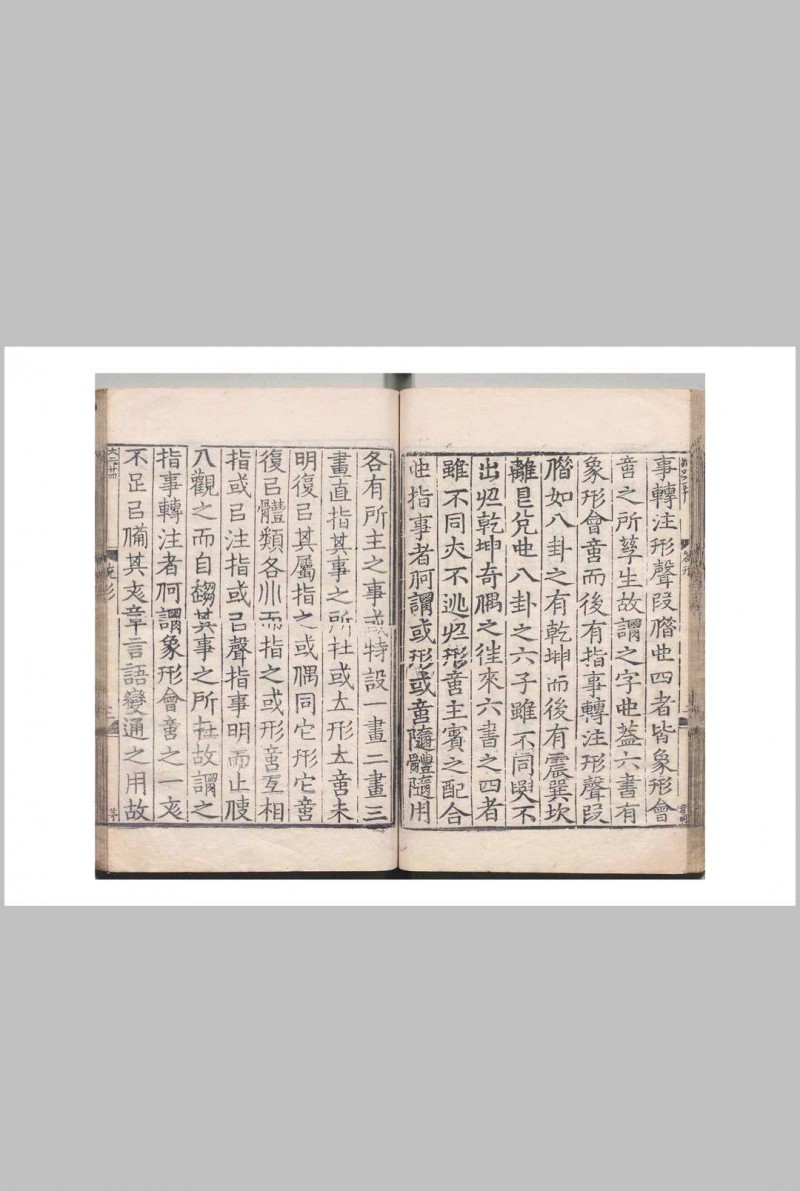 事轉注形聲叚借也四者皆象形會
意之所孳生故謂之字也蓋六書有
象形會意而後有指事轉注形聲叚
借如八卦之有乾坤而後有震巽坎
離㠯兌也八卦之六子雖不同要不
出於乾坤奇偶之往來六書之四者
雖不同亦不逃於形意主賓之配合
也指事者何謂或形或意隨體隨用
各有所主之事或特設一畫二畫三
畫直指其事之所在或大形大意未
明復㠯其屬指之或偶同它形它意
復㠯體類各而指之或形意互相
指或㠯注指或㠯聲指事明而止使
人觀之而自趨其事之所在故謂之
指事轉注者何謂象形會意之一文
不足㠯備其文章言語變通之用故
統形
三